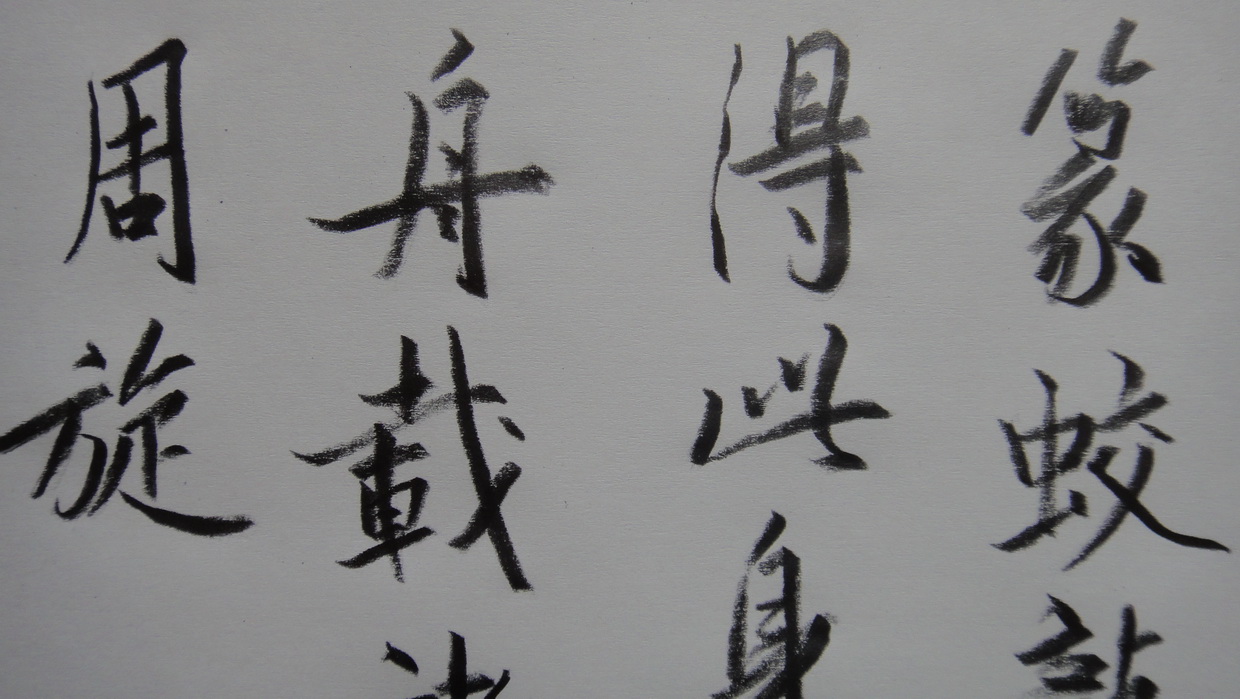 篆蛟
得此身
舟載
周旋